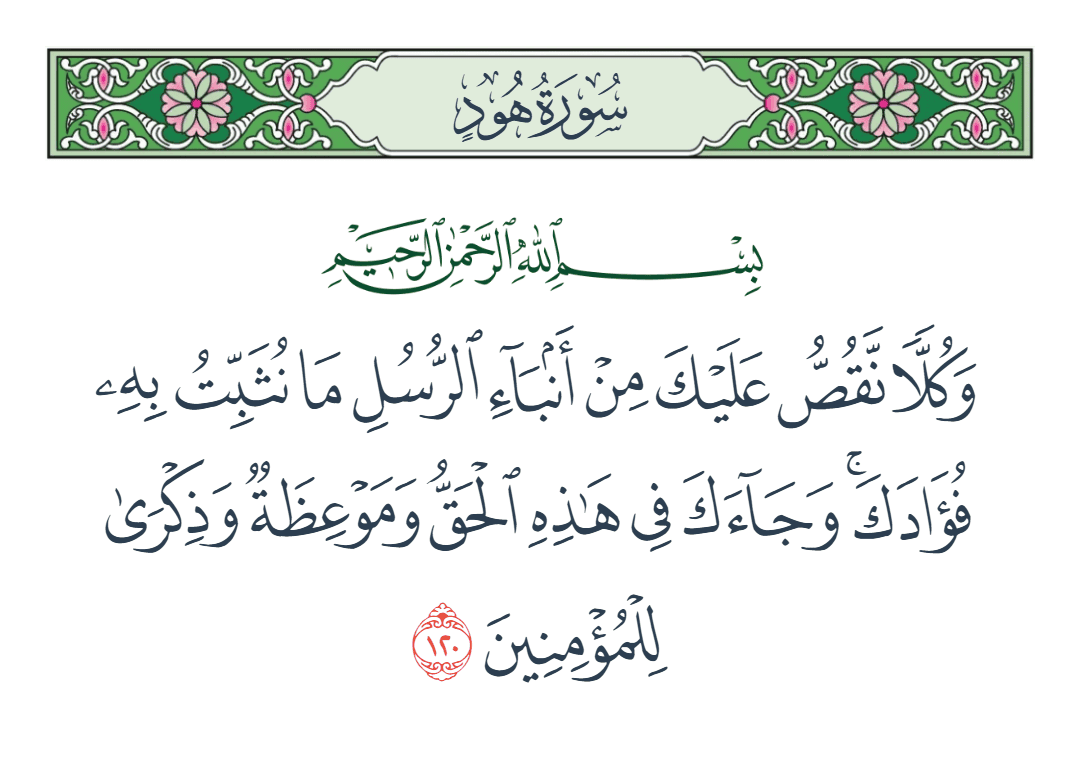 سُورَةُ هُودٍ
بِسْمِ ٱللَّهِ ٱلرَّحْمَٰنِ ٱلرَّحِيمِ
وَكُلًّا نَّقُصُّ عَلَيْكَ مِنْ أَنۢبَآءِ ٱلرُّسُلِ مَا نُثَبِّتُ بِهِۦ
فُؤَادَكَ ۚ وَجَآءَكَ فِي هَٰذِهِ ٱلْحَقُّ وَمَوْعِظَةٌ وَذِكْرَىٰ
لِلْمُؤْمِنِينَ ١٢٠